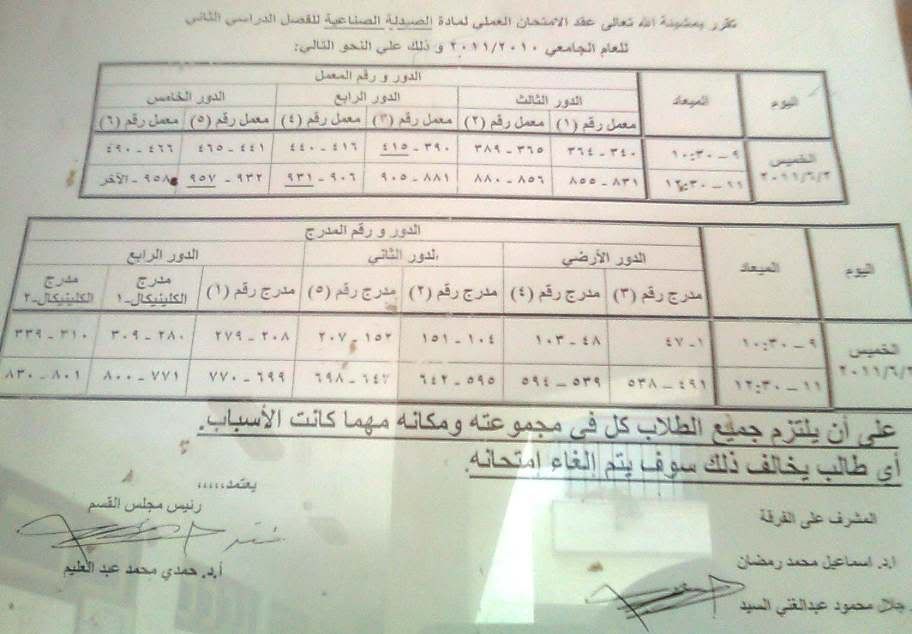 تقرر بمشيئة الله تعالى عقد الامتحان العملي لمادة الصيدلة الصناعية للفصل الدراسي الثاني
للعام الجامعي ٢٠١١/٢٠١٠ و ذلك علي النحو التالي:
اليوم الميعاد الدور و رقم المعمل
الدور الثالث الدور الرابع الدور الخامس
معمل رقم (١) معمل رقم (٢) معمل رقم (٣) معمل رقم (٤) معمل رقم (٥) معمل رقم (٦)
الخميس ٩ - ١٠:٣٠ ٣٤٠ - ٣٦٤ ٣٦٥ - ٣٨٩ ٣٩٠ - ٤١٥ ٤١٦ - ٤٤٠ ٤٤١ - ٤٦٥ ٤٦٦ - ٤٩٠
٢٠١١/٦/٢ ١١ - ١٢:٣٠ ٨٣١ - ٨٥٥ ٨٥٦ - ٨٨٠ ٨٨١ - ٩٠٥ ٩٠٦ - ٩٣١ ٩٣٢ - ٩٥٧ ٩٥٨ - الآخر
اليوم الميعاد الدور و رقم المدرج
الدور الأرضي الدور الثاني الدور الرابع
مدرج رقم (٣) مدرج رقم (٤) مدرج رقم (٢) مدرج رقم (٥) مدرج رقم (١) مدرج الكلينيكال-١ مدرج الكلينيكال-٢
الخميس ٩ - ١٠:٣٠ ١ - ٤٧ ٤٨ - ١٠٣ ١٠٤ - ١٥١ ١٥٢ - ٢٠٧ ٢٠٨ - ٢٧٩ ٢٨٠ - ٣٠٩ ٣١٠ - ٣٣٩
٢٠١١/٦/٢ ١١ - ١٢:٣٠ ٤٩١ - ٥٣٨ ٥٣٩ - ٥٩٤ ٥٩٥ - ٦٤٢ ٦٤٧ - ٦٩٨ ٦٩٩ - ٧٧٠ ٧٧١ - ٨٠٠ ٨٠١ - ٨٣٠
على أن يلتزم جميع الطلاب كل في مجموعته ومكانه مهما كانت الأسباب.
أي طالب يخالف ذلك سوف يتم إلغاء امتحانه.
يعتمد،،،،،
رئيس مجلس القسم
أ.د. حمدي محمد عبد العليم
المشرف على الفرقة
ا.د. اسماعيل محمد رمضان
جلال محمود عبدالغني السيد